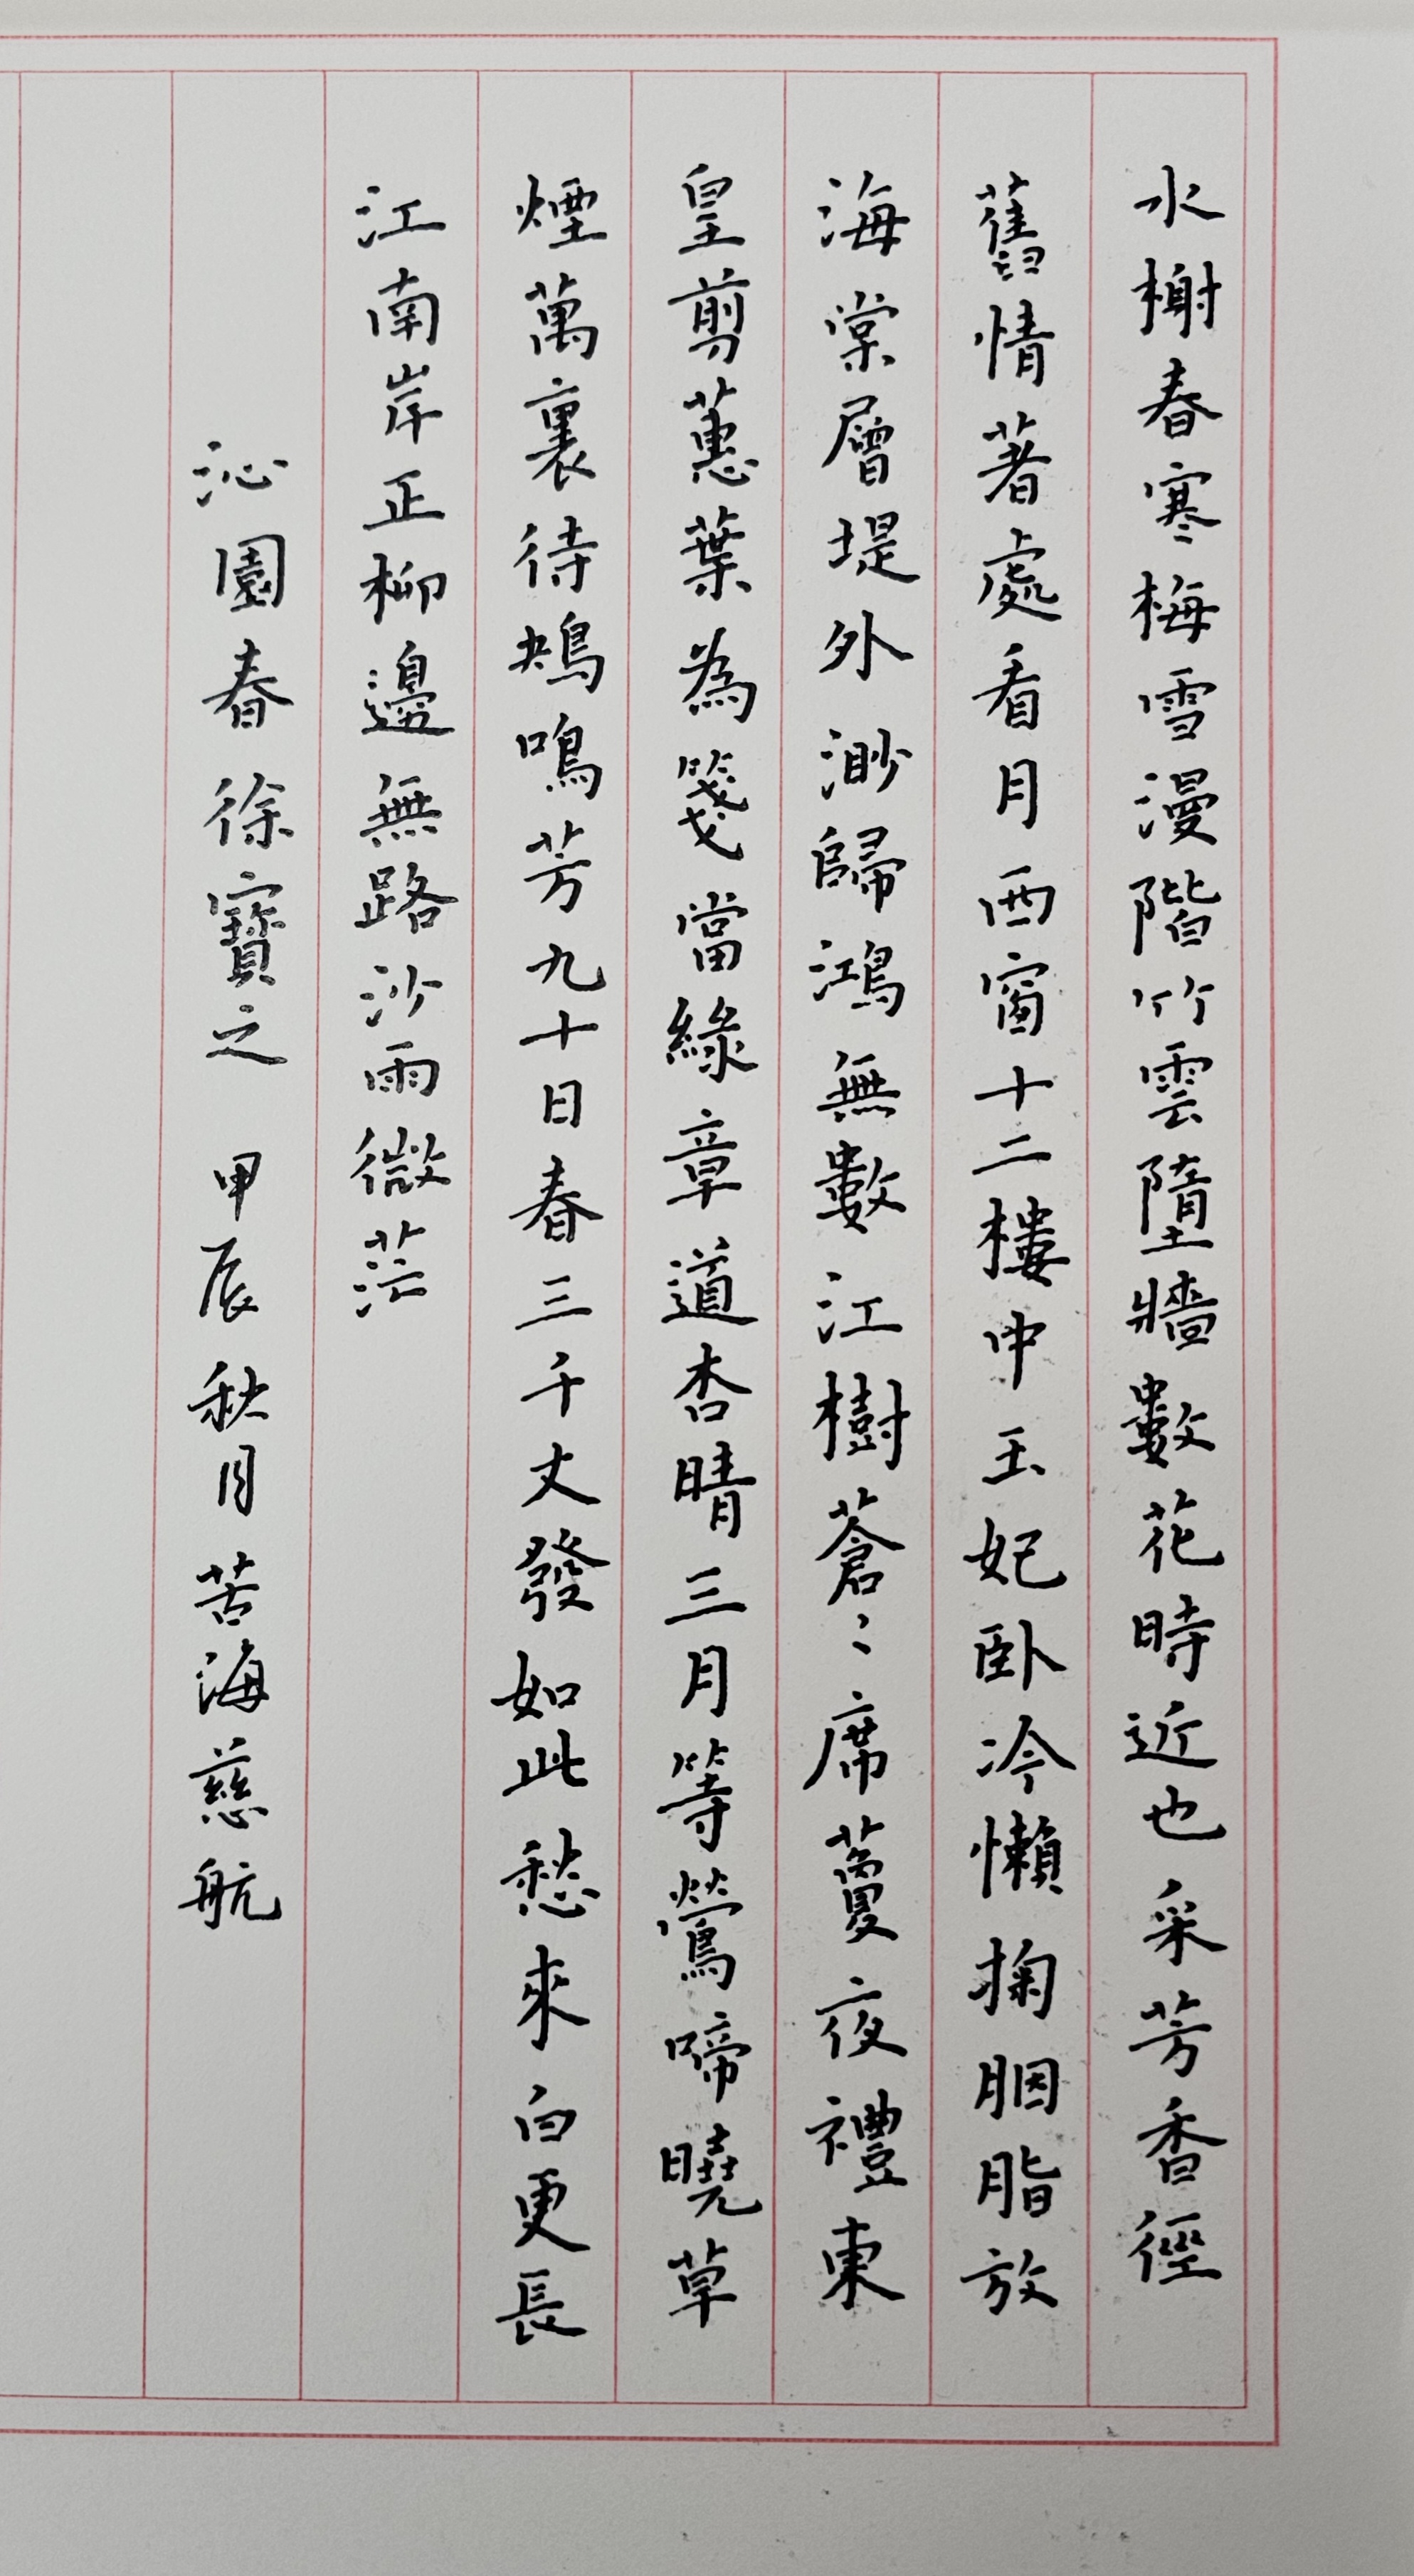 水榭春寒梅雪漫階竹雲墮牆數花時近也采芳香徑
舊情著處看月西窗十二樓中玉妃卧冷懶掬胭脂放
海棠層堤外渺歸鴻無數江樹蒼〻席蘷夜禮東
皇剪蕙葉為箋當綠章道杏晴三月等鶯啼曉草
煙萬裏待鴂鳴芳九十日春三千丈發如此愁來白更長
江南岸正柳邊無路沙雨微茫
沁園春徐寶之 甲辰秋月苦海慈航